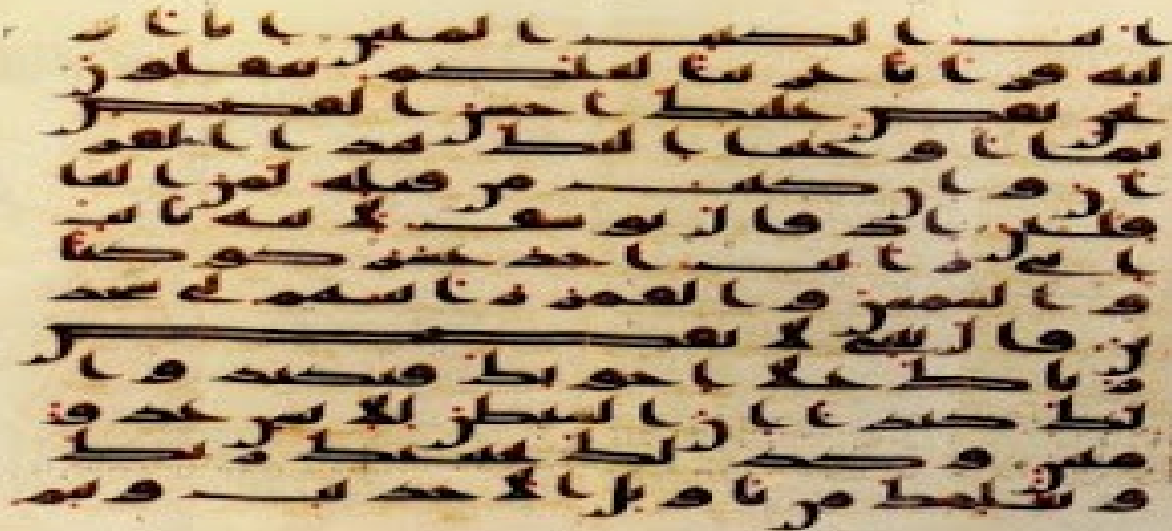 ايت الكتب المبين انا انز
لنه قرانا عربيا لعلكم تعقلون
نحن نقص عليك احسن القصص
بما اوحينا اليك هذا القر
ان وان كنت من قبله لمن الغا
فلين اذ قال يوسف لابيه يابت
اني رايت احد عشر كوكبا
والشمس والقمر رايتهم لي سجد
ين قال يبني لا تقصص
رياك على اخوتك فيكيدوا
لك كيدا ان الشيطن للانسن عدو
مبين وكذلك يجتبيك ربك
ويعلمك من تاويل الاحديث ويتم